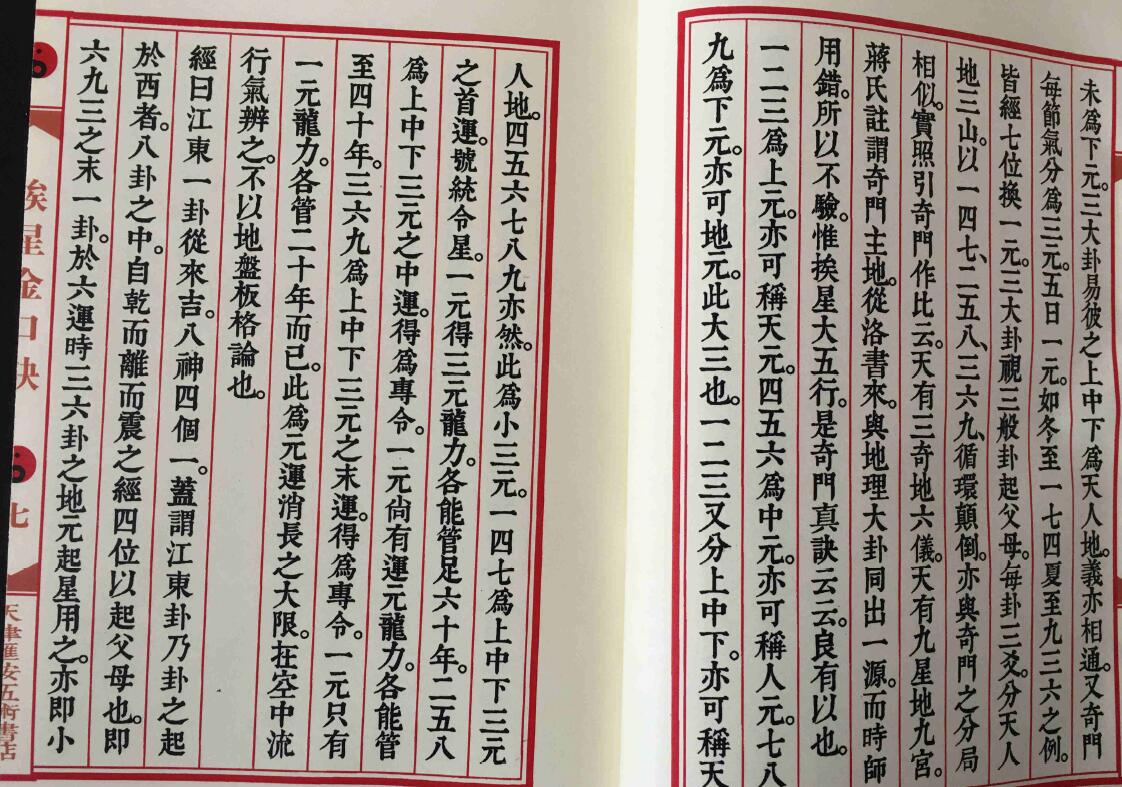 未為下元。三大卦易彼之上中下為天人地。義亦相通。又奇門
每節氣分為三元。五日一元。如冬至一七四夏至九三六之例。
皆經七位換一元。三大卦視三般卦起父母。每卦三爻。分天人
地三山。以一四七、二五八、三六九、循環顛倒。亦與奇門之分局
相似。實照引奇門作比云。天有三奇地六儀。天有九星地九宮。
蔣氏註謂奇門主地。從洛書來。與地理大卦同出一源。而時師
用錯。所以不驗。惟挨星大五行。是奇門真訣云云。良有以也。
一二三為上元。亦可稱天元。四五六為中元。亦可稱人元。七八
九為下元。亦可地元。此大三也。一二三又分上中下。亦可稱天
人地。四五六七八九亦然。此為小三元。一四七為上中下三元
之首運。號統令星。一元得三元龍力。各能管足六十年。二五八
為上中下三元之中運。得為專令。一元尙有運元龍力。各能管
至四十年。三六九為上中下三元之末運。得為專令。一元只有
一元龍力。各管二十年而已。此為元運消長之大限。在空中流
行氣辨之。不以地盤板格論也。
經曰江東一卦從來吉。八神四個一。蓋謂江東卦乃卦之起
於西者。八卦之中。自乾而離而震之經四位以起父母也。即
六九三之末一卦。於六運時三六卦之地元起星用之。亦即小
挨星金口訣
七
天津匯安五術書店